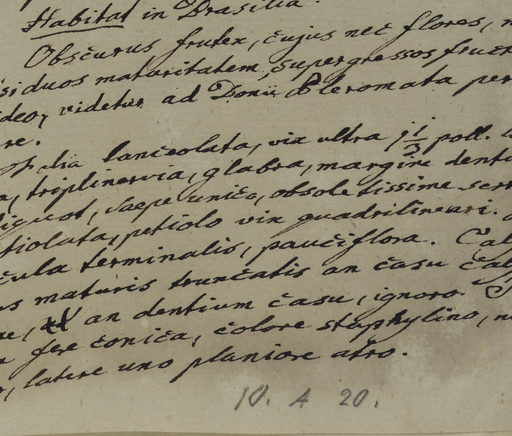 Habitat in Brasilia.
Obscurus frutex, cujus nec flores, n
siduos maturitatem supergressos fruct
ideo, videtur ad Donii Pleromata per
re.
lia lanceolata, vix ultra 1 1/2 poll. l
a, triplinervia, glabra, margine denti
liquot, saepe unico, obsoletissime serr
tiolata, petiolo vix quadrilineari.
cula terminalis, pauciflora. Cal
us maturis truncatis an casu caly
ne, an dentium casu, ignoro.
a fere conica, colore staphylino, n
, latere uno planiore atro.
10. A 20.